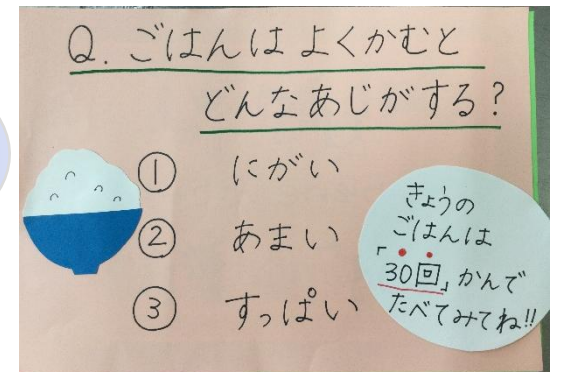 Q. ごはんは よくかむと
どんなあじがする?
① にがい
② あまい
③ すっぱい
きょうの
ごはんは
「30回」かんで
たべてみてね!!